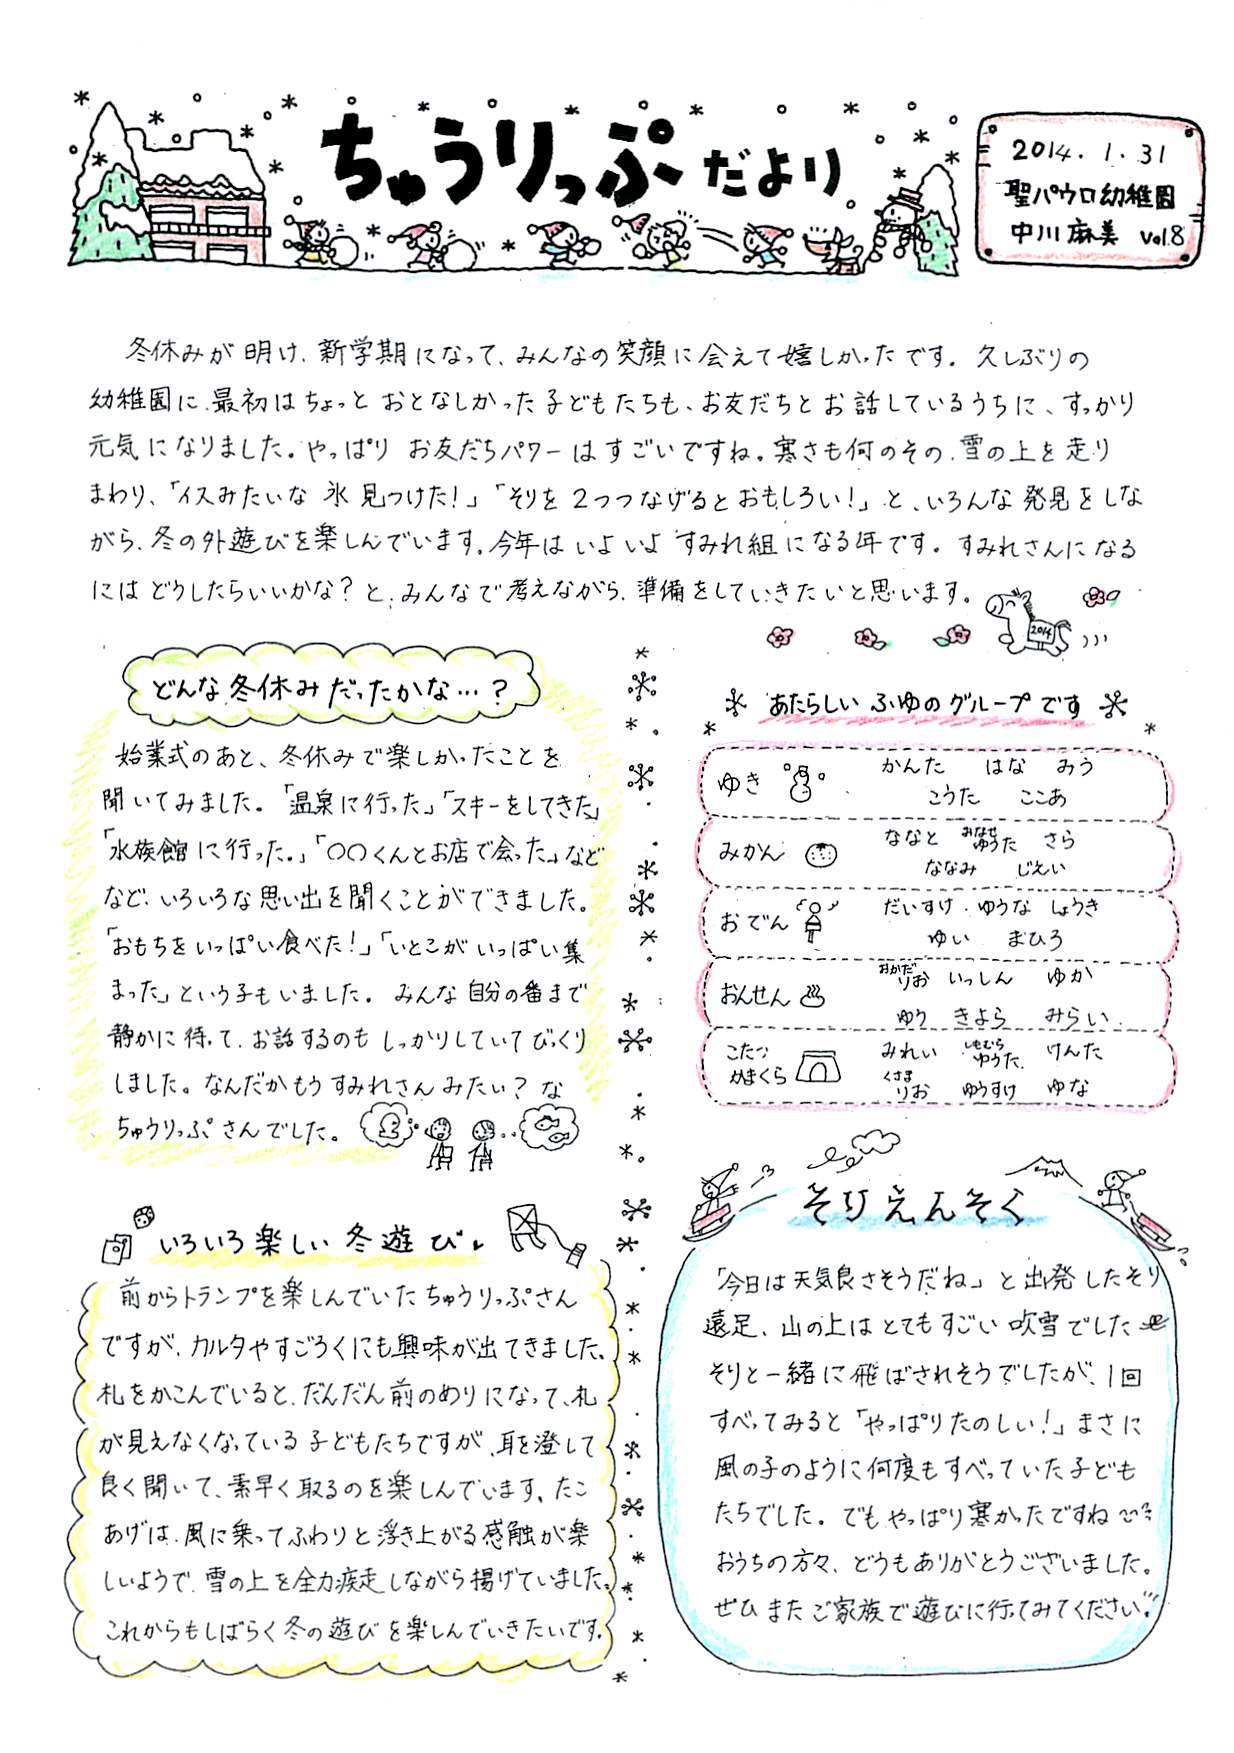 ちゅうりっぷだより
2014.1.31
聖パウロ幼稚園
中川麻美 vol.8
冬休みが明け、新学期になって、みんなの笑顔に会えて嬉しかったです。久しぶりの
幼稚園に、最初はちょっとおとなしかった子どもたちも、お友だちとお話しているうちに、すっかり
元気になりました。やっぱりお友だちパワーはすごいですね。寒さも何のその、雪の上を走り
まわり、「イスみたいな氷見つけた！」「そりを2つつなげるとおもしろい！」と、いろんな発見をしな
がら、冬の外遊びを楽しんでいます。今年はいよいよすみれ組になる年です。すみれさんになる
にはどうしたらいいかな？と、みんなで考えながら、準備をしていきたいと思います。
2014
どんな冬休みだったかな…？
始業式のあと、冬休みで楽しかったことを
聞いてみました。「温泉に行った」「スキーをしてきた」
「水族館に行った。」「○○くんとお店で会った。」など
など、いろいろな思い出を聞くことができました。
「おもちをいっぱい食べた！」「いとこがいっぱい集
まった」という子もいました。みんな自分の番まで
静かに待って、お話するのもしっかりしていてびっくり
しました。なんだかもうすみれさんみたい？な
ちゅうりっぷさんでした。
あたらしいふゆのグループです
ゆき かんた はな みう
こうた ここあ
みかん ななと ゆうた さら
ななみ じえい
おでん だいすけ ゆうな しょうき
ゆい まひろ
おんせん おかだりお いっしん ゆか
ゆり きよら みらい
こたつ みれい しもむらゆうた けんた
かまくら くさまりお ゆうすけ ゆな
いろいろ楽しい冬遊び
前からトランプを楽しんでいたちゅうりっぷさん
ですが、カルタやすごろくにも興味が出てきました。
札をかこんでいると、だんだん前のめりになって、札
が見えなくなっている子どもたちですが、耳を澄して
良く聞いて、素早く取るのを楽しんでいます。たこ
あげは、風に乗ってふわりと浮き上がる感触が楽
しいようで、雪の上を全力疾走しながら揚げていました。
これからもしばらく冬の遊びを楽しんでいきたいです。
そりえんそく
「今日は天気良さそうだね」と出発したそり
遠足、山の上はとてもすごい吹雪でした
そりと一緒に飛ばされそうでしたが、1回
すべってみると「やっぱりたのしい！」まさに
風の子のように何度もすべっていた子ども
たちでした。でもやっぱり寒かったですね
おうちの方々、どうもありがとうございました。
ぜひまたご家族で遊びに行ってみてください